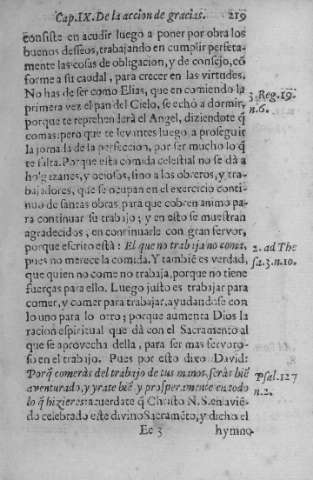 Cap.IX. De la accion de gracias. 219
consiste en acudir luego a poner por obra los
buenos desseos, trabajando en cumplir perfeta-
mente las cosas de obligacion, y de consejo, cō
forme a su caudal, para crecer en las virtudes.
No has de ser como Elias, que en comiendo la
primera vez el pan del Cielo, se echó a dormir,
3. Reg. 19.
n.6.
porque te reprehenderá el Angel, diziendote q̄
comas: pero que te levantes luego a proseguir
la jornada de la perfeccion, por ser mucho lo q̄
te falta. Porque esta comida celestial no se dà a
holgazanes, y ociosos, sino a los obreros, y tra-
bajadores, que se ocupan en el exercicio conti-
nuo de santas obras, para que cobren animo pa-
ra continuar su trabajo; y en esto se muestran
agradecidos, en continuarle con gran fervor,
porque escrito està: El que no trabaja no coma,
2. ad The
sa.3.n.10.
pues no merece la comida. Y tambiē es verdad,
que quien no come no trabaja, porque no tiene
fuerças para ello. Luego justo es trabajar para
comer, y comer para trabajar, ayudandose con
lo uno para lo otro; porque aumenta Dios la
racion espiritual que dà con el Sacramento al
que se aprovecha della, para ser mas fervoro-
so en el trabajo. Pues por esto dixo David:
Porq̄ comeràs del trabajo de tus manos, seràs biē
Psal.127
n.2.
aventurado, y yrate biē y prosperamente en todo
lo q̄ hizieres: acuerdate q̄ Christo N.S. en aviē-
do celebrado este divino Sacramēto, y dicho el
Ee 3 hymno